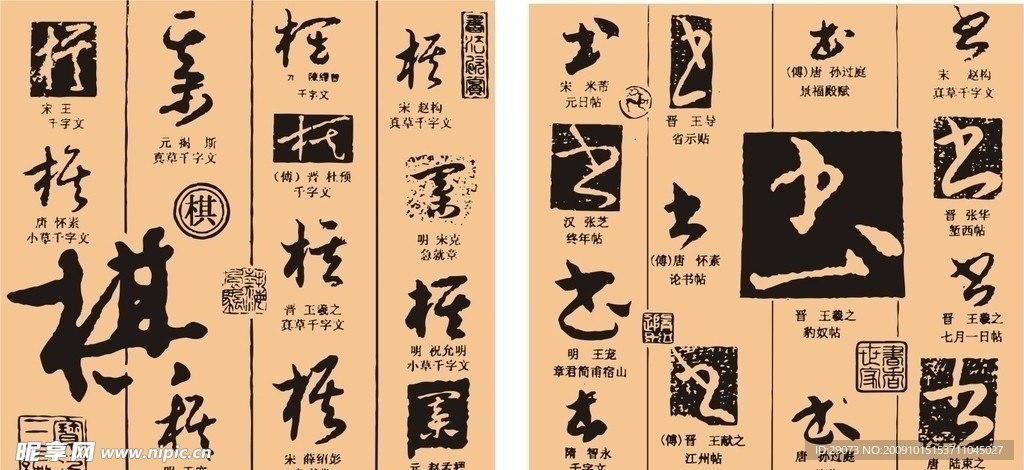 宋 王
千字文
唐 怀素
小草千字文
棋
元 揭 斯
真草千字文
棋
元 陳繹曾
千字文
(傅) 晋 杜预
千字文
晋 王羲之
真草千字文
宋 薛绍彭
宋 赵构
真草千字文
明 宋克
急就章
明 祝允明
小草千字文
元 赵孟頫
宋 米芾
元日帖
汉 张芝
终年帖
明 王宠
章君简甫宿山
隋 智永
千字文
晋 王导
省示贴
(傅)唐 怀素
论书帖
(傅)晋 王献之
江州帖
(傅)唐 孙过庭
景福殿赋
书
晋 王羲之
豹奴帖
唐 孙过庭
宋 赵构
真草千字文
晋 张华
堑西帖
晋 王羲之
七月一日帖
書香世家
唐 陆柬之
昵享网 www.nipic.cn
ID:29073 NO:20091015153711045027